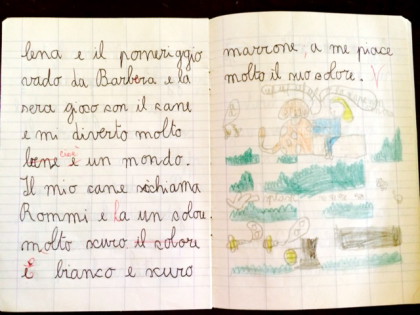 lena e il pomeriggio
vado da Barbera e la
sera gioco con il cane
e mi diverto molto
bene è un mondo.
Il mio cane si chiama
Rommi e la un colore
molto scuro il colore
è bianco e scuro
marrone, a me piace
molto il suo colore.